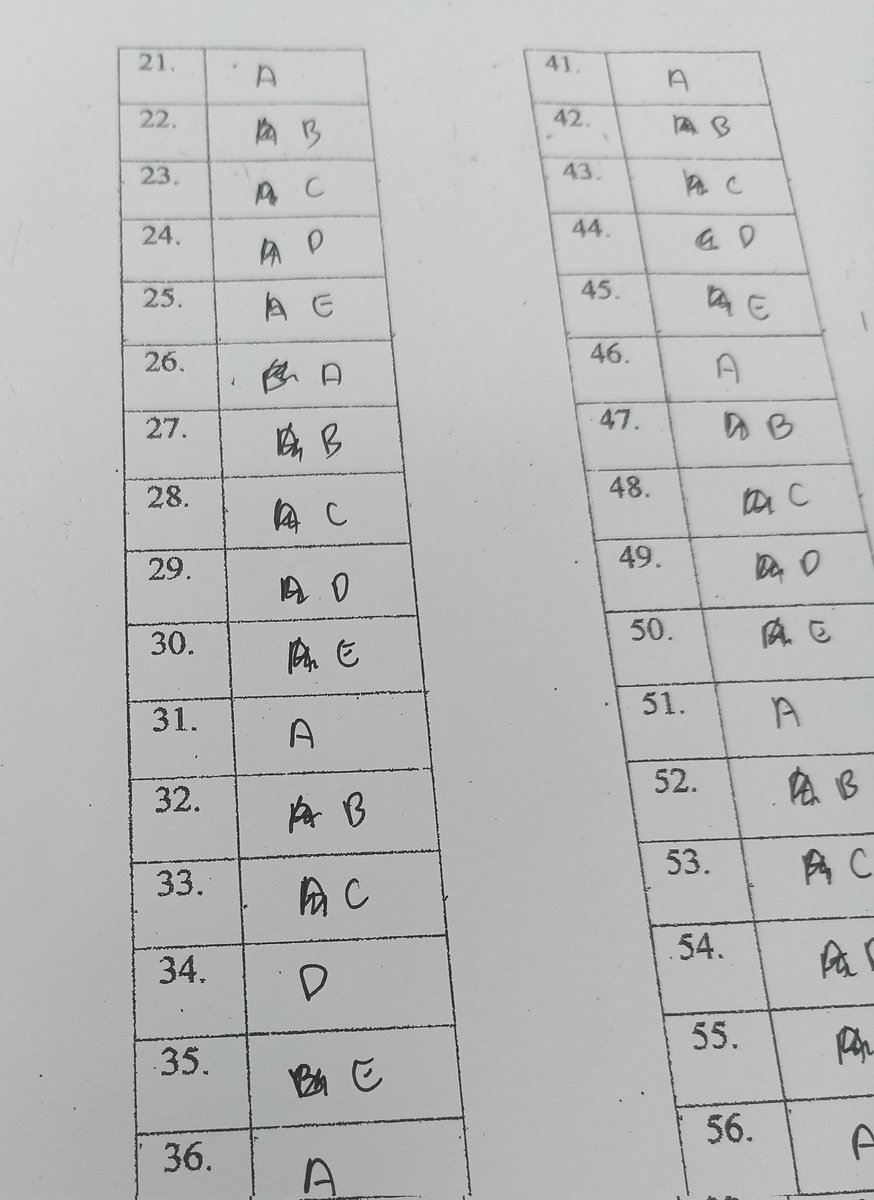 21. A
22. B
23. C
24. D
25. E
26. A
27. B
28. C
29. D
30. E
31. A
32. B
33. C
34. D
35. E
36. A
41. A
42. B
43. C
44. D
45. E
46. A
47. B
48. C
49. D
50. E
51. A
52. B
53. C
54.
55.
56. A